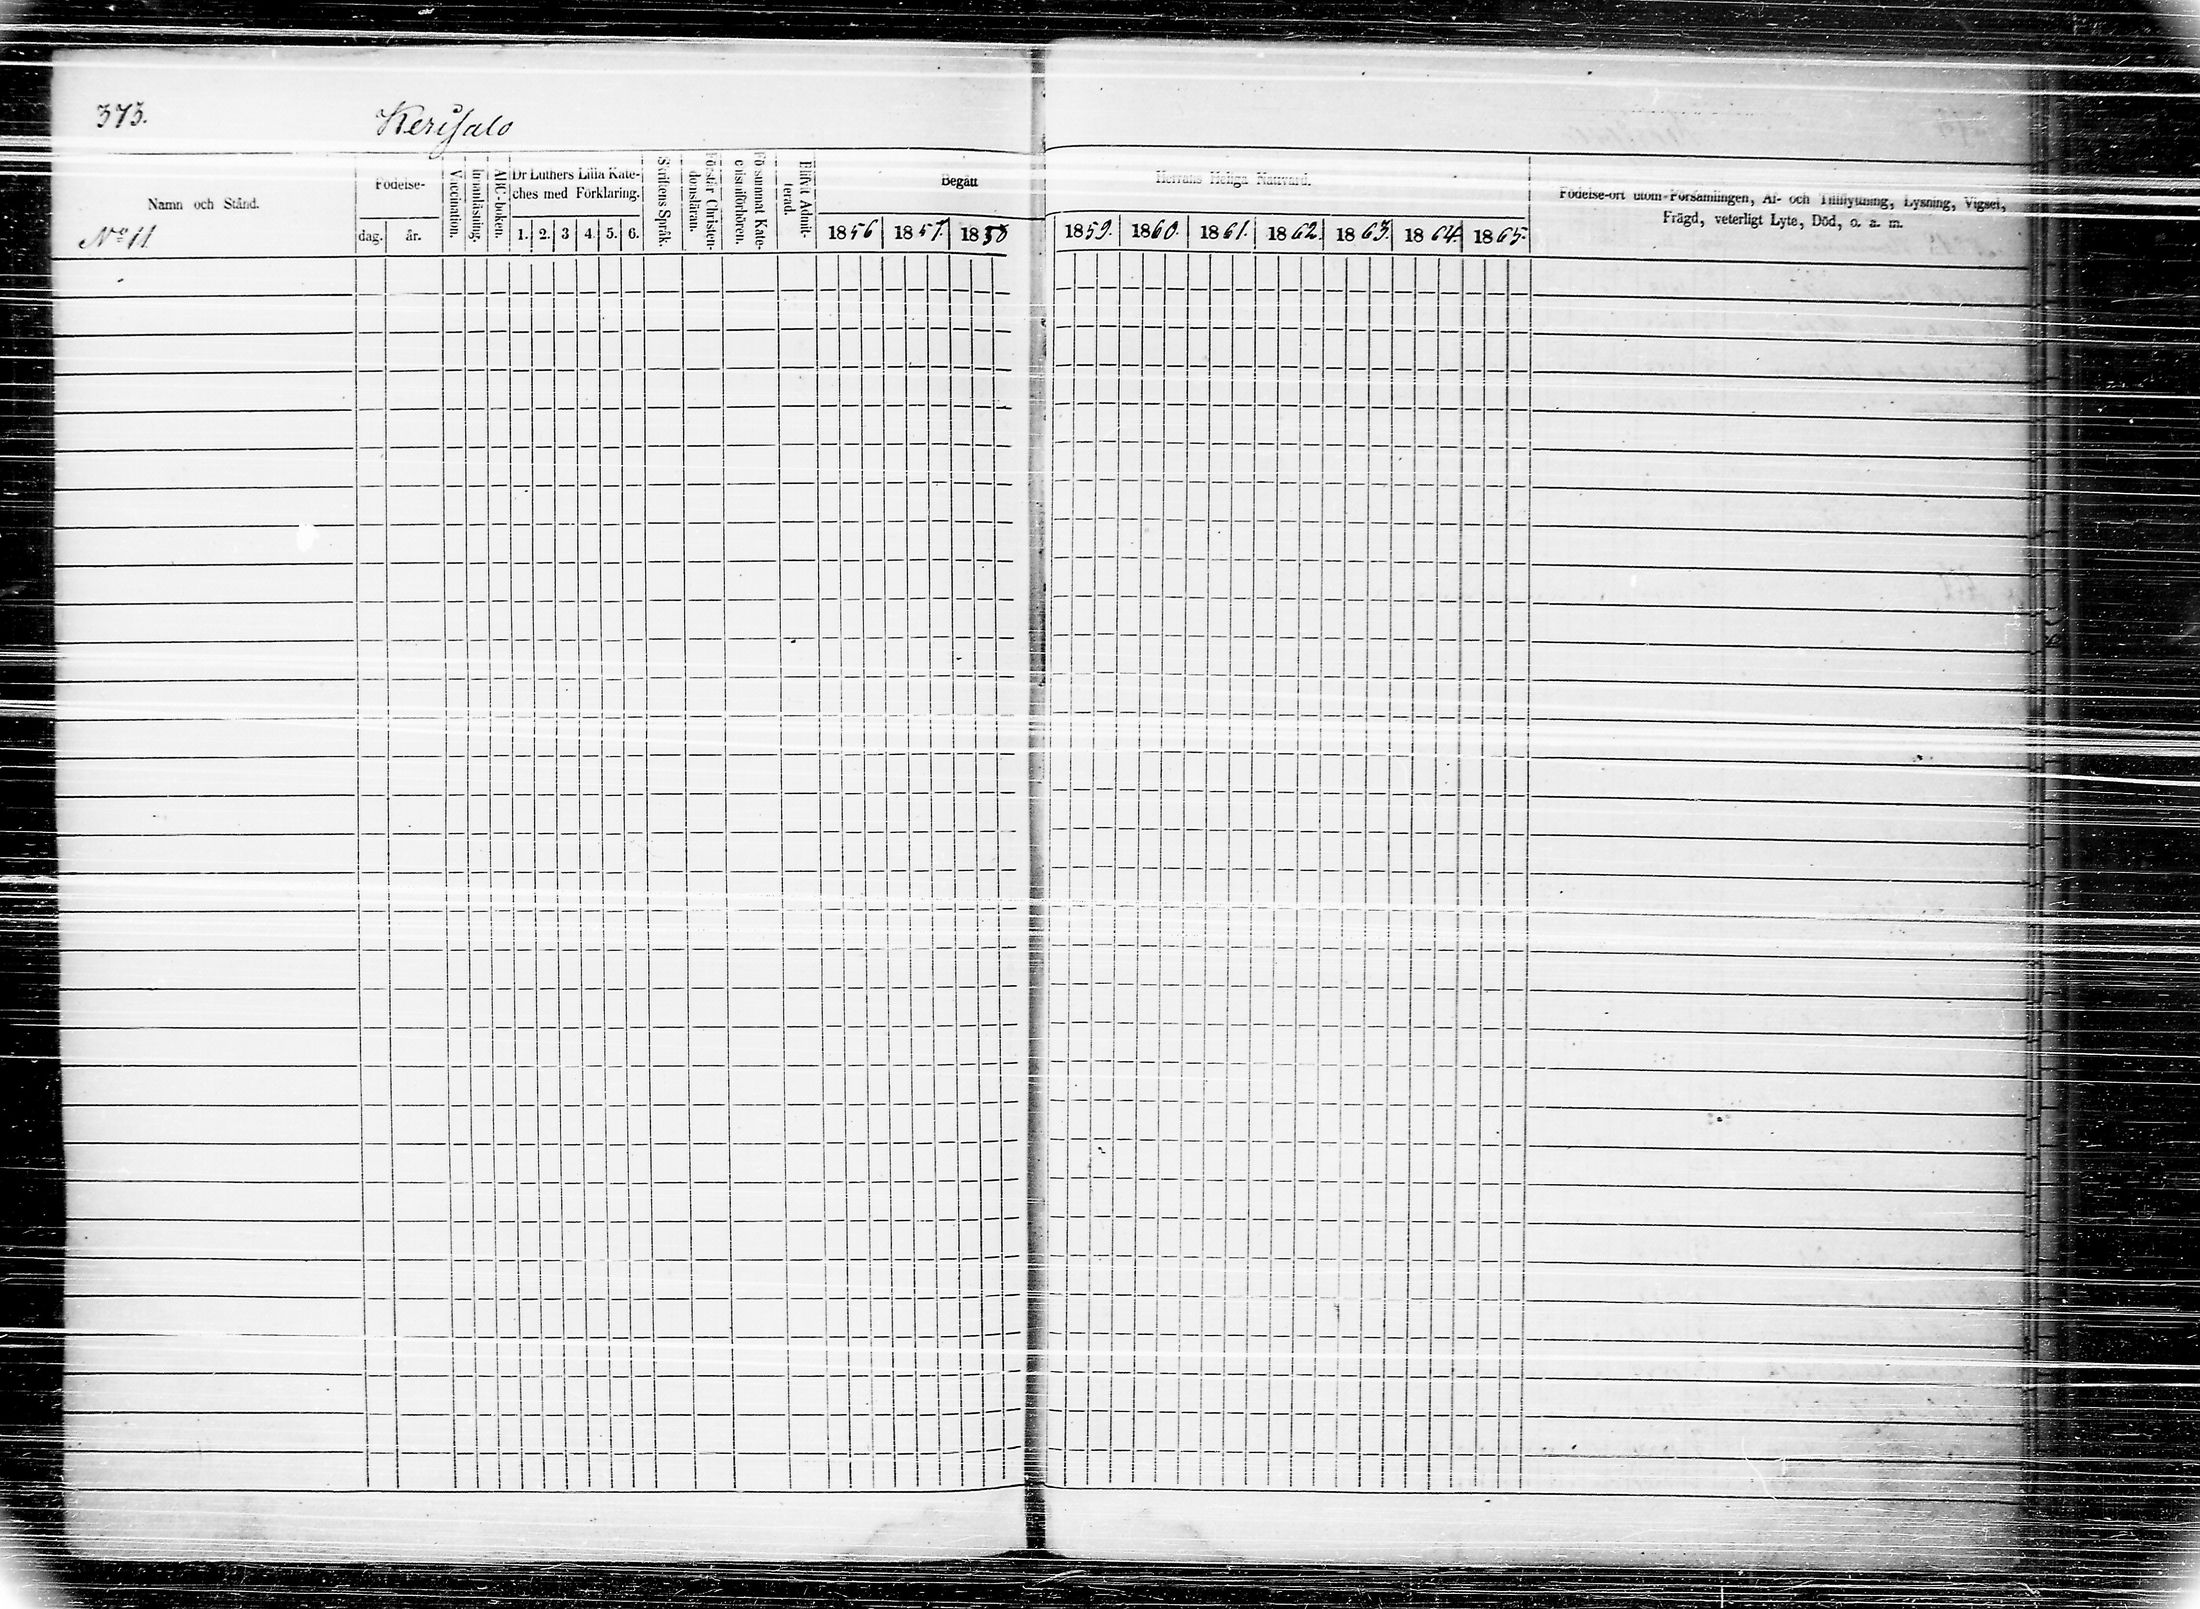 373.
Kerisalo
Namn och Stånd.
No 11
Födelse-
dag.
år.
Vaccination.
Innanläsning.
ABC-boken.
Dr Luthers Lilla Kate-
ches med Förklaring.
1. 2. 3 4. 5. 6.
Skriftens Språk.
Förstår Christen-
domsläran.
Försummat Kate-
chismiförhören.
Blifvit Admit-
terad.
Begått
1856 1857. 1858
Herrans Heliga Nattvard.
1859. 1860. 1861. 1862. 1863. 1864. 1865.
Födelse-ort utom Församlingen, Af- och Tillflyttning, Lysning, Vigsel,
Frägd, veterligt Lyte, Död, o. a. m.